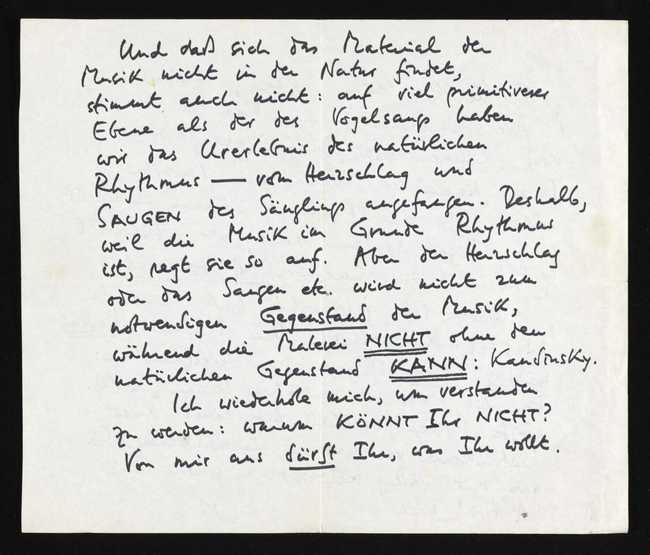 Und daß sich das Material der
Musik nicht in der Natur findet,
stimmt auch nicht: auf viel primitiverer
Ebene als der des Vogelsangs haben
wir das Urerlebnis des natürlichen
Rhythmus — vom Herzschlag und
SAUGEN des Säuglings angefangen. Deshalb,
weil die Musik im Grunde Rhythmus
ist, regt sie so auf. Aber der Herzschlag
oder das Saugen etc. wird nicht zum
notwendigen Gegenstand der Musik,
während die Malerei NICHT ohne den
natürlichen Gegenstand KANN: Kandinsky.
Ich wiederhole mich, um verstanden
zu werden: warum KÖNNT Ihr NICHT?
Von mir aus dürft Ihr, was Ihr wollt.